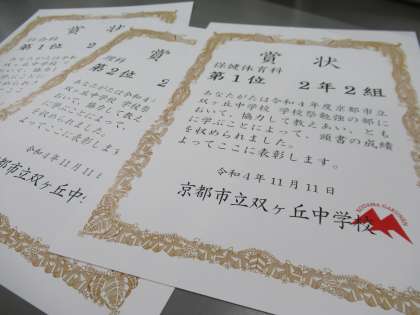 賞状
社会科
第１位 ２
賞
理科
第２位 ２
あなたがたは令和４
双ヶ丘中学校 学校祭
おいて、協力して教え
に学ぶことによって、
を収められました。
よってここに表彰しま
令和４年１１月１
京都市立双ヶ丘中
賞状
保健体育科
第１位 ２年２組
あなたがたは令和４年度京都市立
双ヶ丘中学校 学校祭勉強の部に
おいて、協力して教えあい、とも
に学ぶことによって、頭書の成績
を収められました。
よってここに表彰します。
令和４年１１月１１日
京都市立双ヶ丘中学校